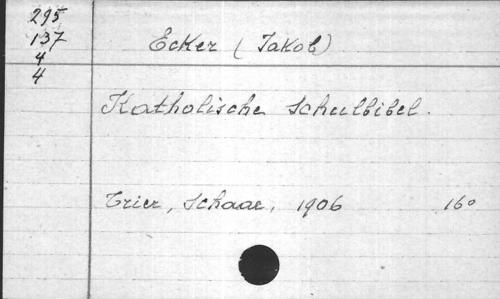 295
137
4
4
Ecker (Jakob)
Katholische Schulbibel.
Trier, Schaar, 1906 16°